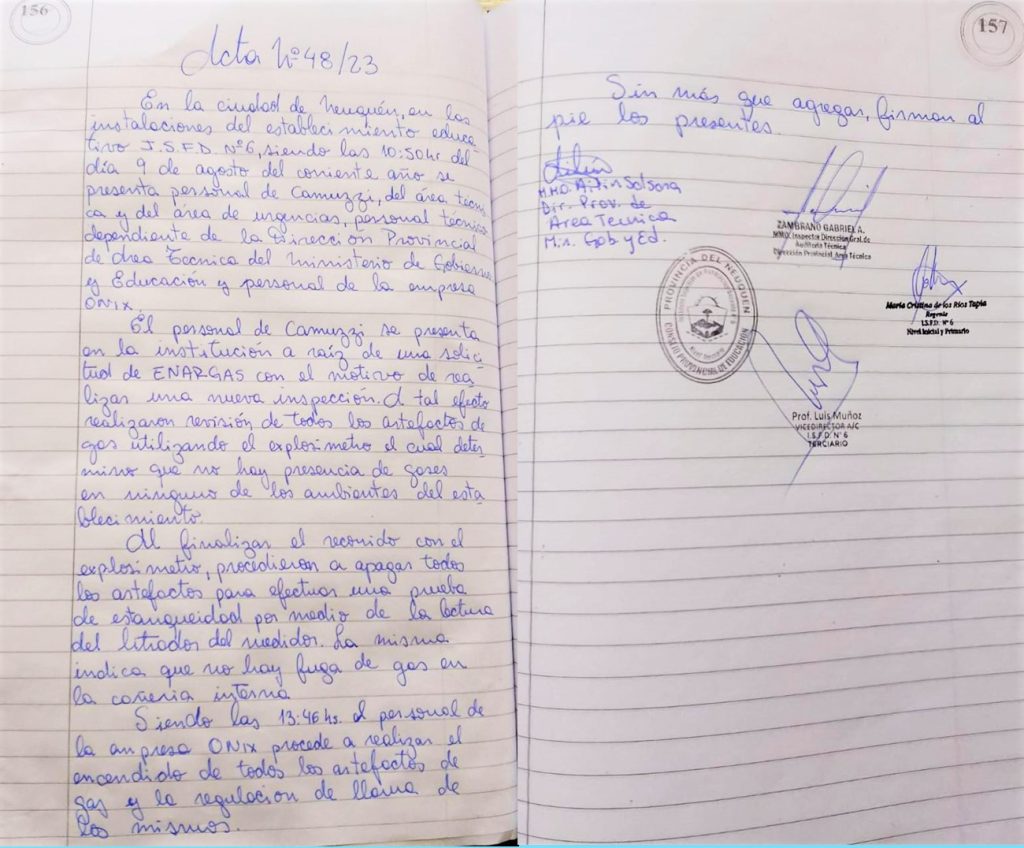 156
Acta Nº 48/23
En la ciudad de Neuquén, en las
instalaciones del establecimiento educa-
tivo I.S.F.D. Nº6, siendo las 10:50hs del
día 9 de agosto del corriente año se
presenta personal de Camuzzi, del área técni-
ca y del área de urgencias, personal técnico
dependiente de la Dirección Provincial
de Area Tecnica del Ministerio de Gobierno
y Educación y personal de la empresa
ONIX.
El personal de Camuzzi se presenta
en la institución a raíz de una solici-
tud de ENARGAS con el motivo de rea-
lizar una nueva inspección. A tal efecto
realizaron revisión de todos los artefactos de
gas utilizando el explosimetro el cual deter-
mino que no hay presencia de gases
en ninguno de los ambientes del esta-
blecimiento.
Al finalizar el recorrido con el
explosimetro, procedieron a apagar todos
los artefactos para efectuar una prueba
de estanqueidad por medio de la lectura
del litrados del medidor. La misma
indica que no hay fuga de gas en
la cañeria interna
Siendo las 13:46 hs. el personal de
la empresa ONIX procede a realizar el
encendido de todos los artefactos de
gas y la regulacion de llama de
los mismos.
157
Sin más que agregar, firman al
pie los presentes.
M.M.O. Aitin Salsona
Dir. Prov. de
Area Tecnica
Min. Gob y Ed.
ZAMBRANO GABRIEL A.
MMO: Inspector Dirección Gral. de
Auditoría Técnica
Dirección Provincial Area Técnica
PROVINCIA DEL NEUQUEN
CONSEJO PROVINCIAL DE EDUCACIÓN
María Cristina de los Ríos Tapia
Regente
I.S.F.D. Nº 6
Nivel Inicial y Primario
Prof. Luis Muñoz
VICEDIRECTOR A/C
I.S.F.D. Nº 6
TERCIARIO